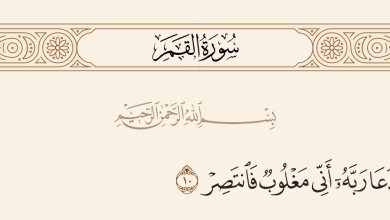 سُورَةُ القَمَرِ
بِسْمِ اللَّهِ الرَّحْمَٰنِ الرَّحِيمِ
دَعَا رَبَّهُۥٓ أَنِّى مَغْلُوبٌ فَٱنتَصِرْ ١٠